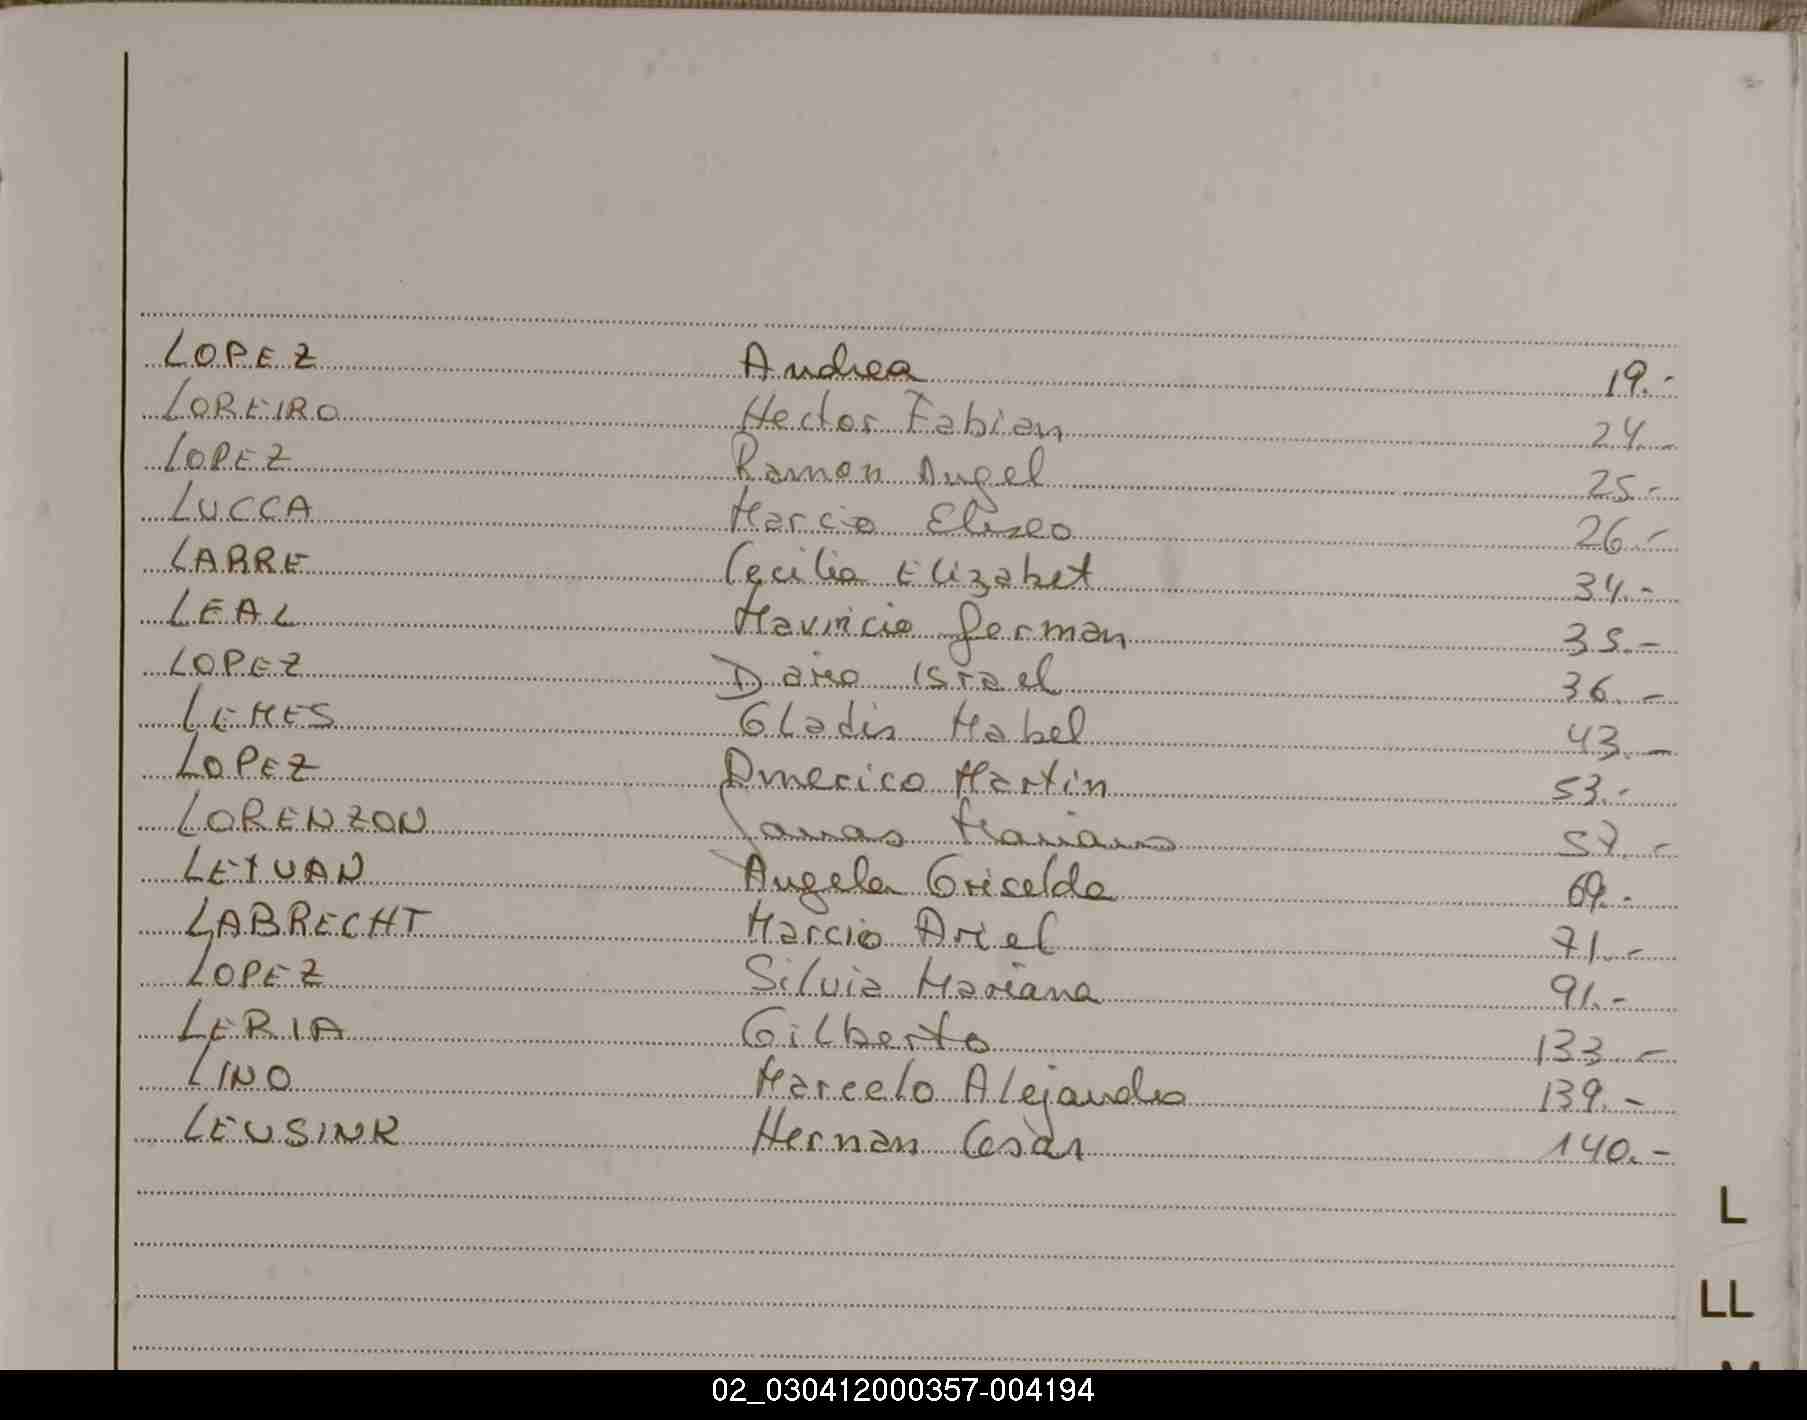 LOPEZ Andrea 19.-
LOREIRO Hector Fabian 24.-
LOPEZ Ramon Angel 25.-
LUCCA Marcio Eliseo 26.-
LARRE Cecilia Elizabet 34.-
LEAL Mauricio German 35.-
LOPEZ Dario Israel 36.-
LEMES Gladis Mabel 43.-
LOPEZ Americo Martin 53.-
LORENZON Mariano 57.-
LEYUAN Angela Griselda 69.-
LABRECHT Marcio Ariel 71.-
LOPEZ Silvia Mariana 91.-
LERIA Gilberto 133.-
LINO Marcelo Alejandro 139.-
LEUSINK Hernan Cesar 140.-
L
LL
02_030412000357-004194